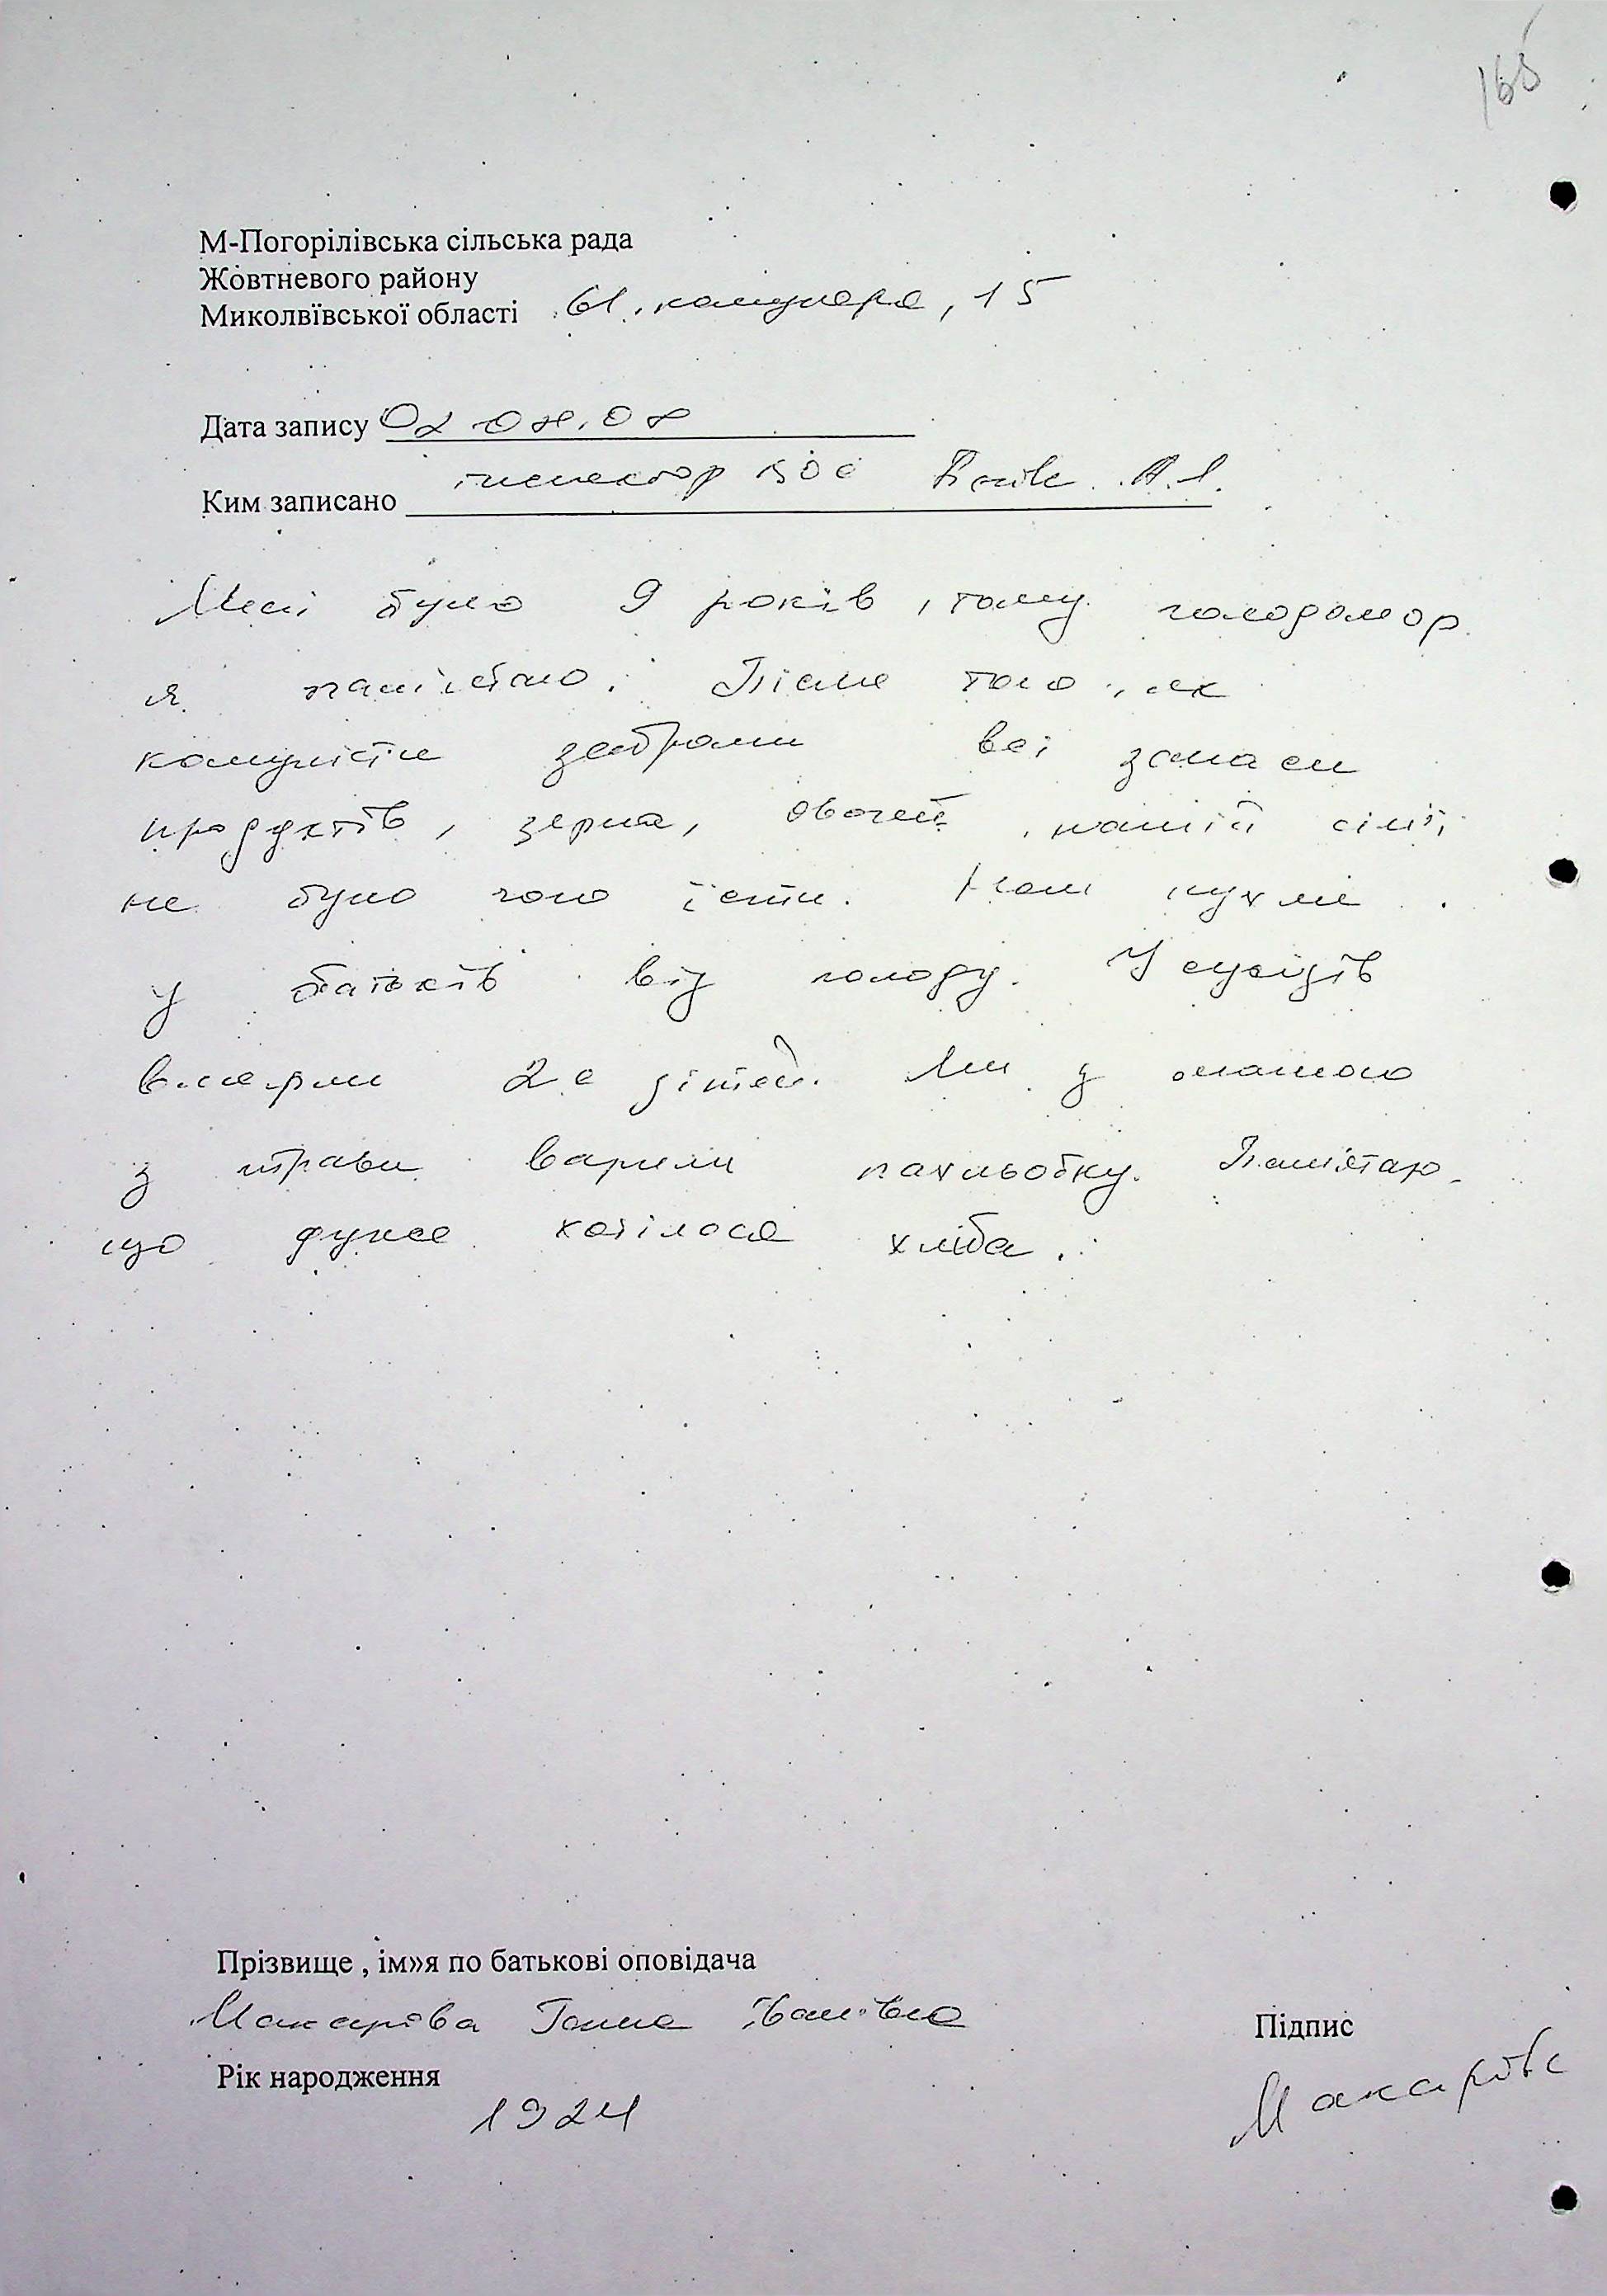 165
М-Погорілівська сільська рада
Жовтневого району
Миколвївської області 61 комунара, 15
Дата запису 02.08.08
Ким записано інспектор ВОС А.І.
Мені було 9 років, тому голодомор
я пам'ятаю. Після того, як
комуністи забрали всі запаси
продуктів, зерна, овочей, нашій сім'ї
не було чого їсти. пухлі
у батьків від голоду. У сусідів
вмерли 2 є дітей. Ми з мамою
з трави варили пахльобку. Пам'ятаю
що дуже хотілося хліба.
Прізвище , ім»я по батькові оповідача
Макарова Ганна Іванівна
Підпис
Рік народження
1924